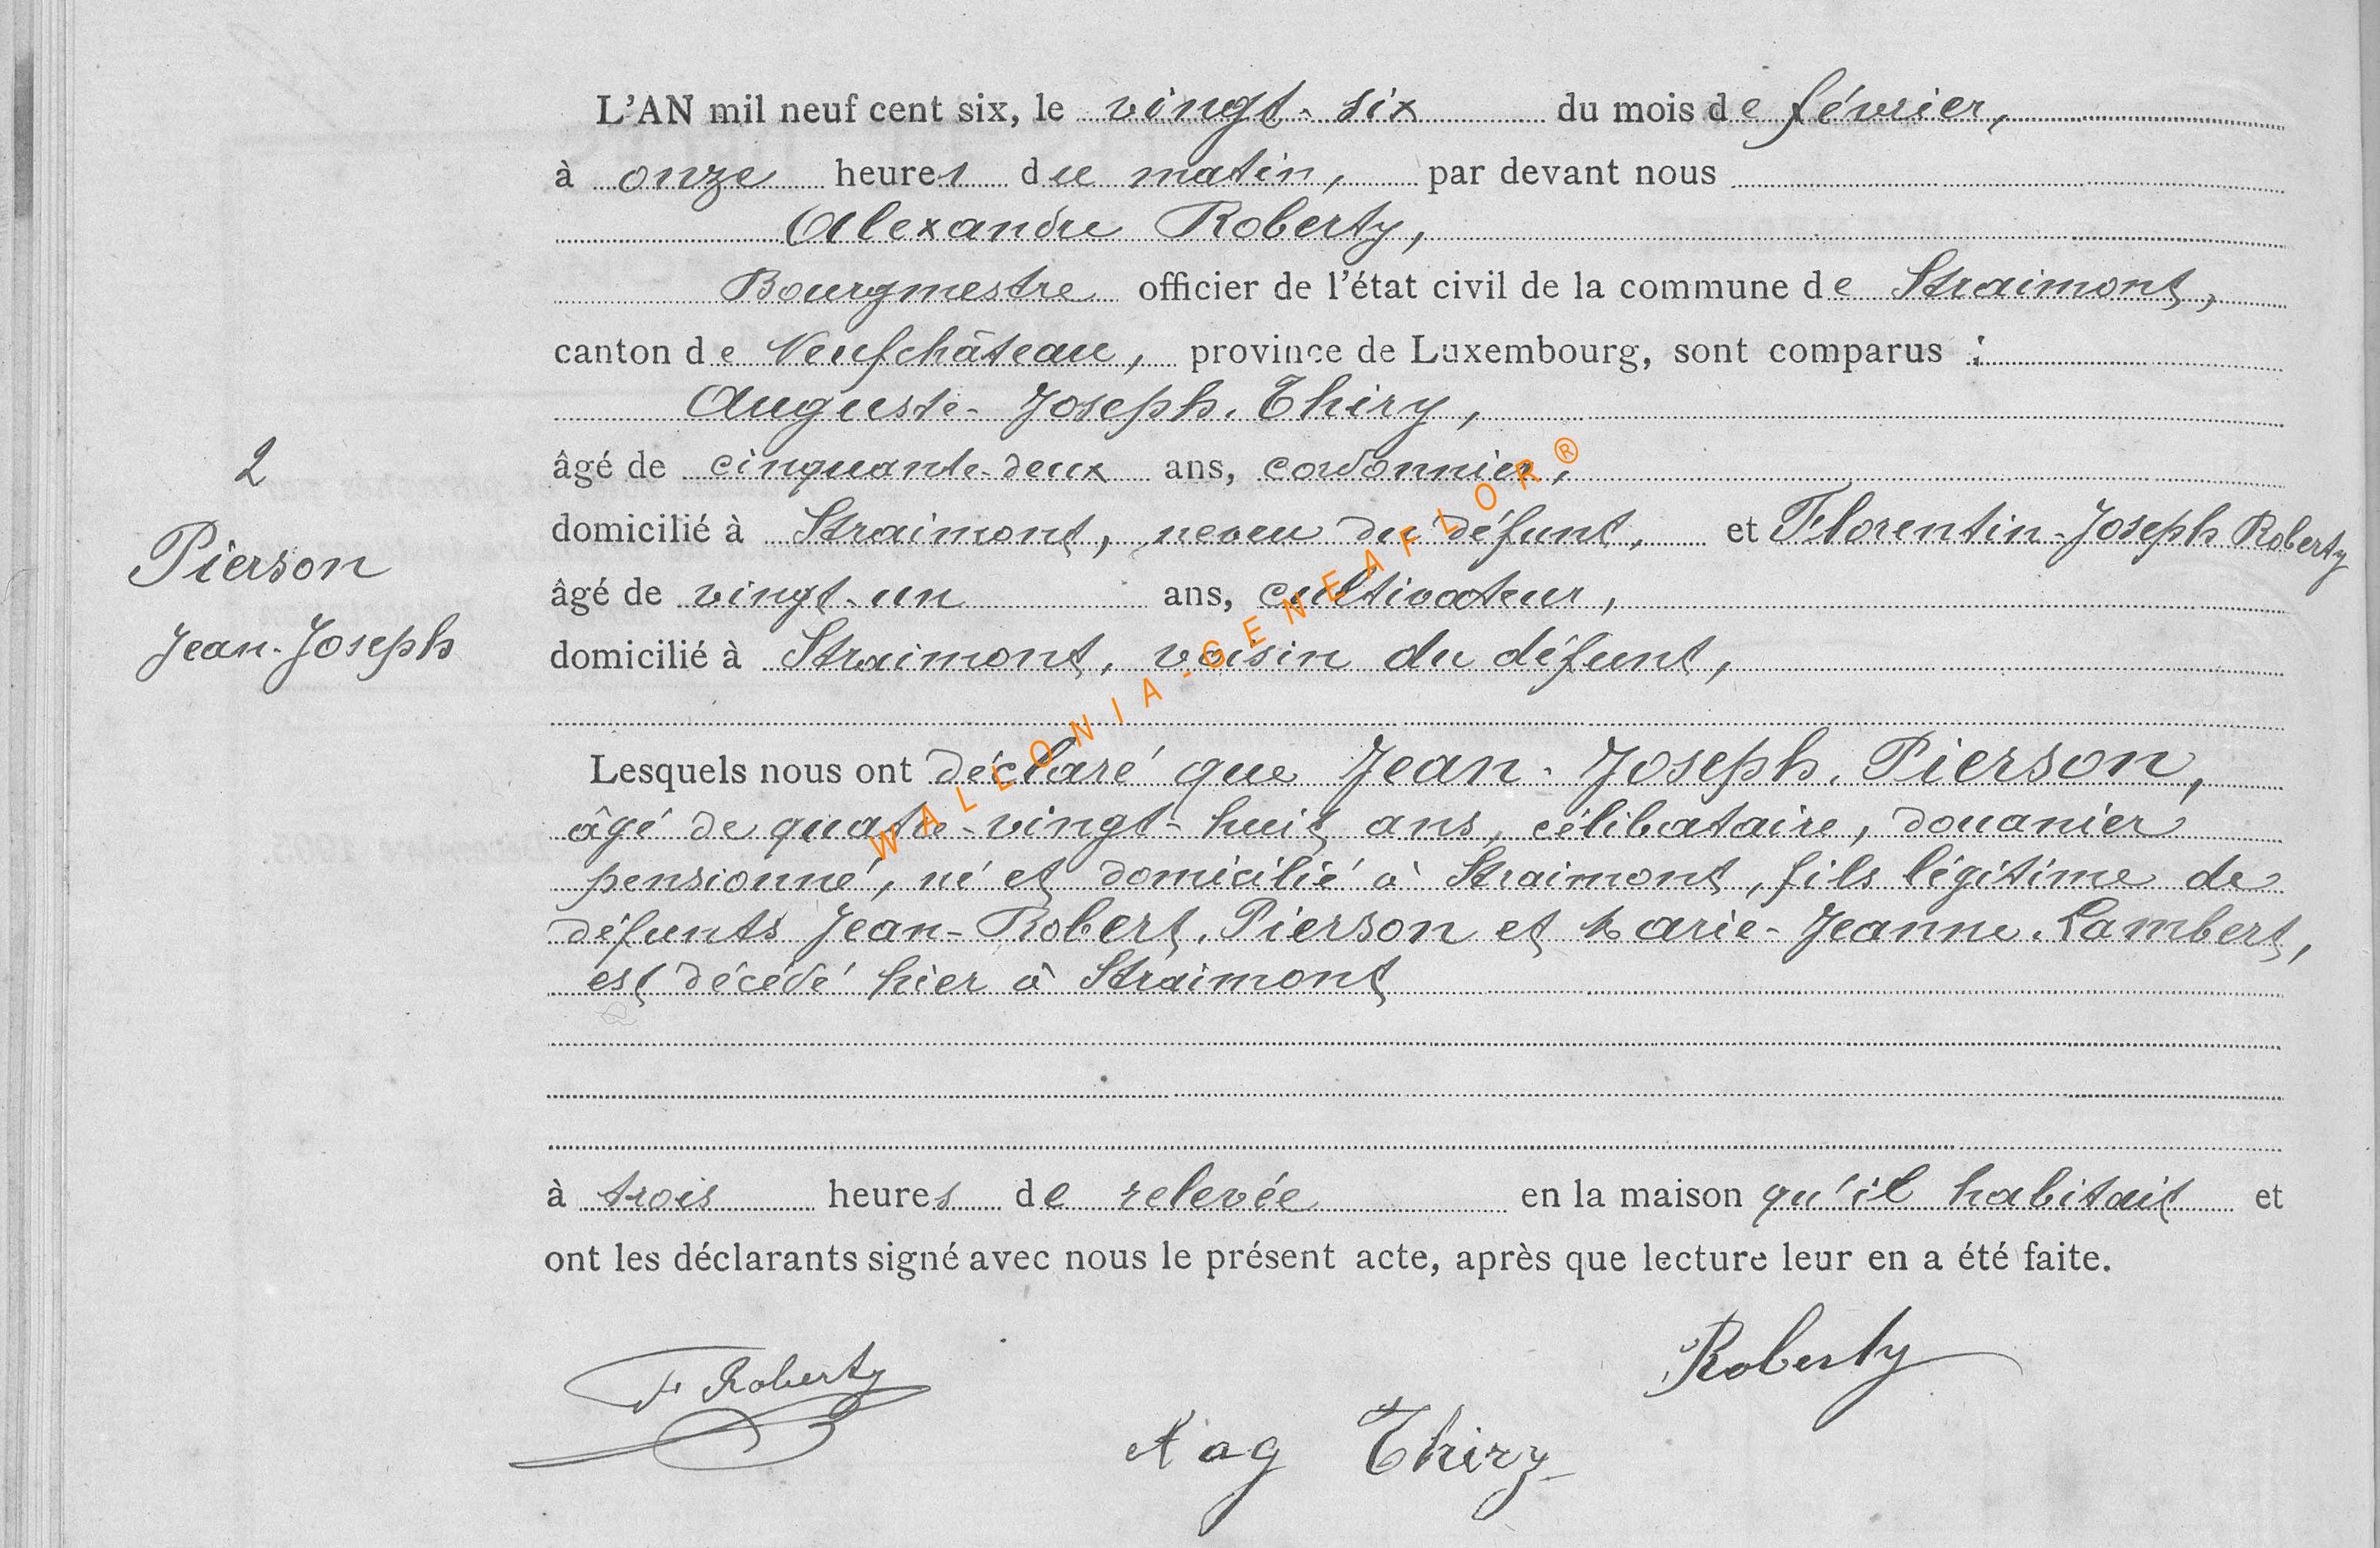 L'AN mil neuf cent six, le vingt-six du mois de février,
à onze heures du matin, par devant nous
Alexandre Roberty,
Bourgmestre officier de l'état civil de la commune de Straimont,
canton de Neufchâteau, province de Luxembourg, sont comparus :
Auguste-Joseph. Thiry,
2
âgé de cinquante-deux ans, cordonnier,
domicilié à Straimont, neveu du défunt, et Florentin-Joseph Roberty
Pierson
âgé de vingt-un ans, cultivateur,
Jean-Joseph
domicilié à Straimont, voisin du défunt,
Lesquels nous ont déclaré que Jean-Joseph. Pierson,
âgé de quatre-vingt-huit ans, célibataire, douanier
pensionné, né et domicilié à Straimont, fils légitime de
défunts Jean-Robert. Pierson et Marie-Jeanne. Lambert,
est décédé hier à Straimont
à trois heures de relevée en la maison qu'il habitait et
ont les déclarants signé avec nous le présent acte, après que lecture leur en a été faite.
Roberty
F Roberty
Aag Thiry
WALLONIA-GENEAFLOR®